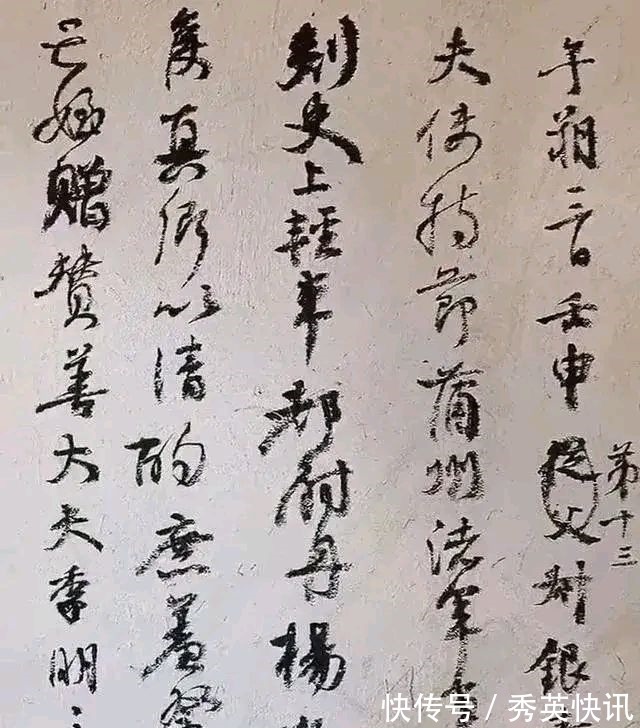 午朔三日壬申從父叔銀
第十三
夫使持節蒲州諸軍事
刺史上輕車都尉丹楊
侯真卿以清酌庶羞祭
亡姪贈贊善大夫季明之
快传号／秀英快讯